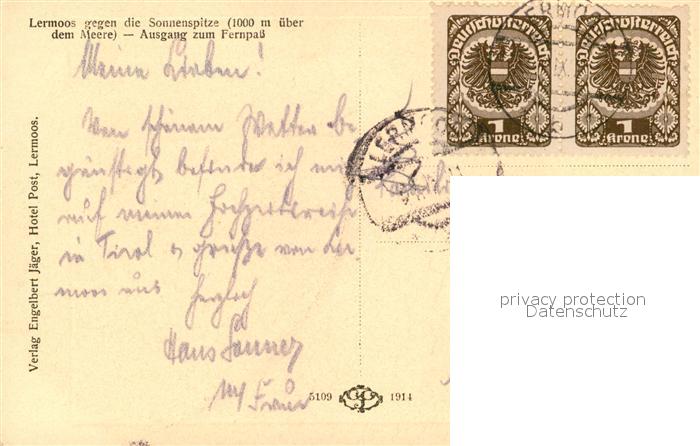 Lermoos gegen die Sonnenspitze (1000 m über
dem Meere) — Ausgang zum Fernpaß
Deutschösterreich
1
Krone
Deutschösterreich
1
Krone
LERMOOS
Meine Lieben!
Von schönem Wetter be-
günstigt befinde ich mich
auf meiner Hochzeitsreise
in Tirol & grüße von Ler-
moos aus
herzlich
Hans
Frau
Verlag Engelbert Jäger, Hotel Post, Lermoos.
5109 1914
privacy protection
Datenschutz